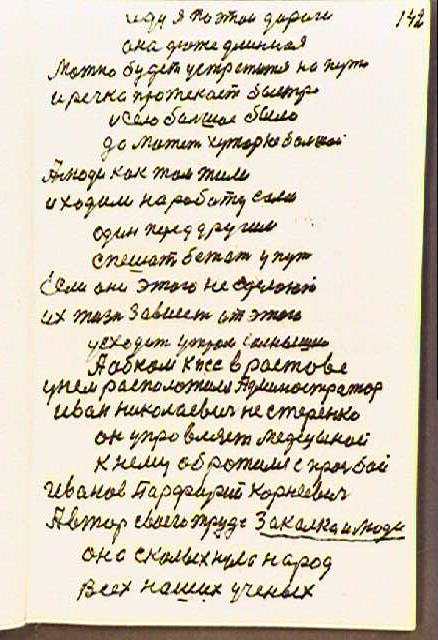 142
иду я по этой дороги
она дюже длинная
Можно будет устретить на пути
и речка протекает быстро
и село большое было
да может хутор небольшой
А люди как там жили
и ходили на работу сами
один перед другим
спешат бежат у путь
Если они этого не сделают
их жизь зависет от этого
усходит утром солнышко
А обком КПСС в растове
унем расположился Администратор
иван николаевич нестеренко
он упровляет медецыной
к нему обротился с прозбой
Иванов Парфирий Корнеевич
Автор своего труда Закалка и люди
она сколыхнула народ
всех наших ученых